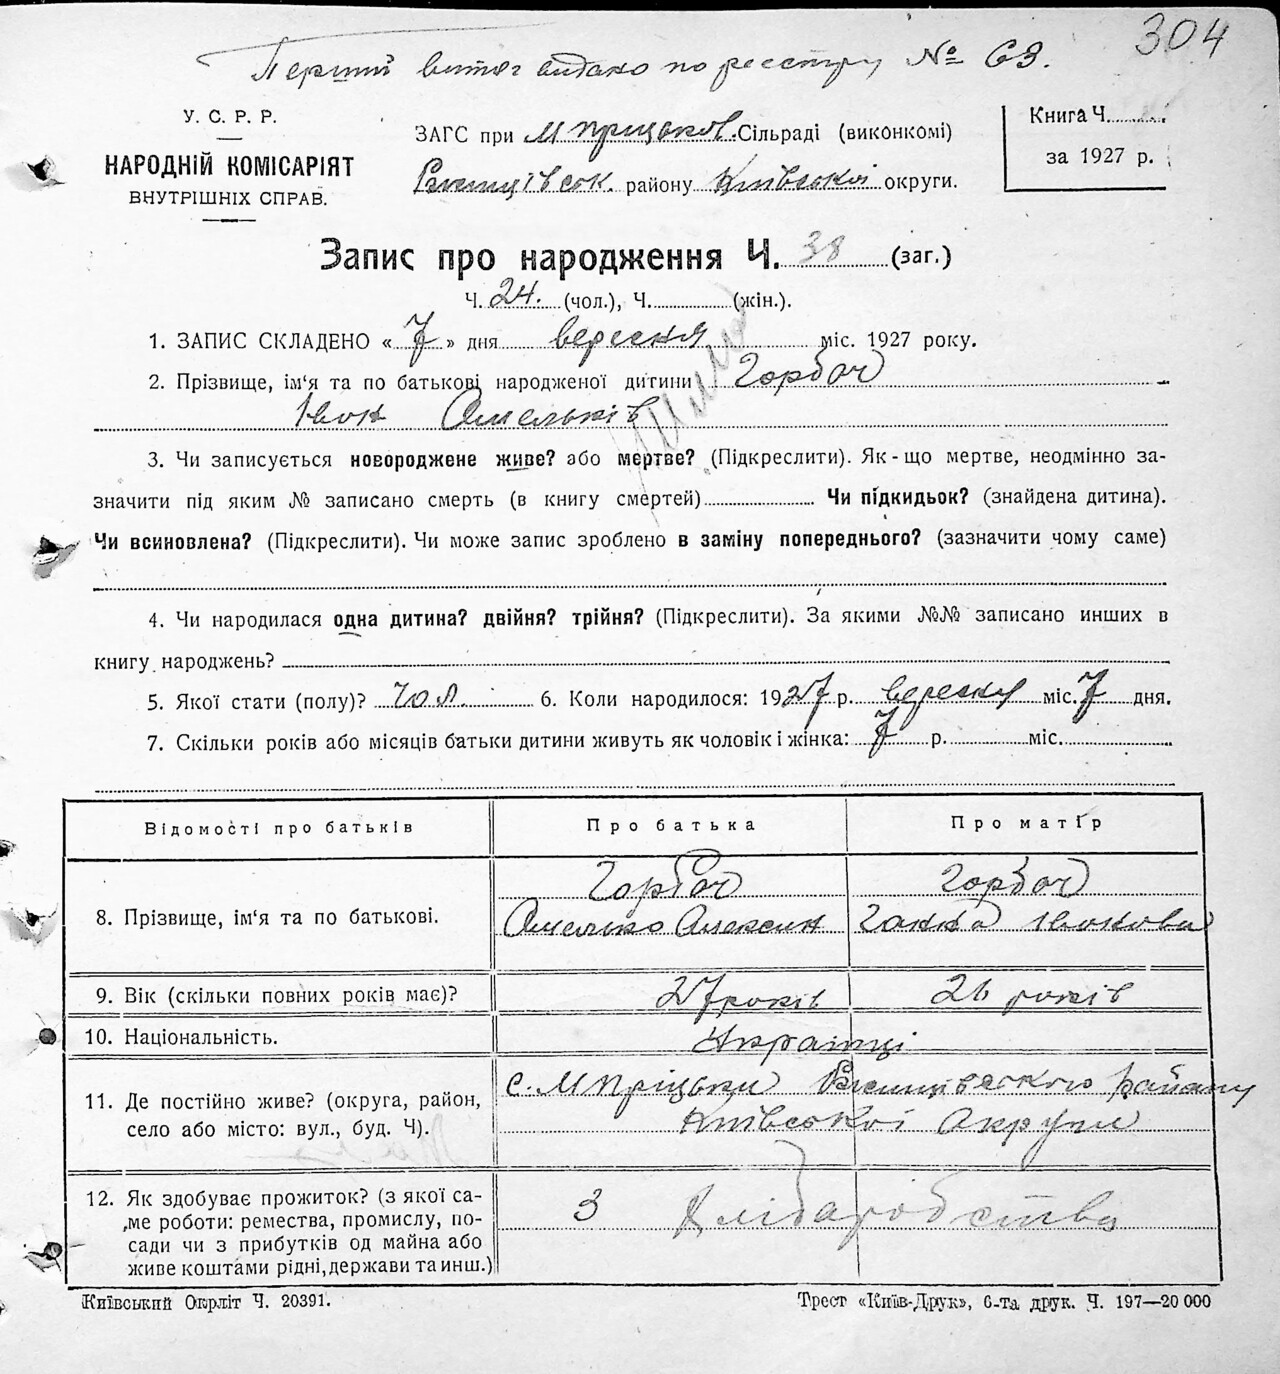 304
Перший витяг видано по реєстру № 63.
У. С. Р. Р.
НАРОДНІЙ КОМІСАРІЯТ
ВНУТРІШНІХ СПРАВ.
ЗАГС при М Прицьков. Сільраді (виконкомі)
району Київської округи.
Книга Ч.
за 1927 р.
Запис про народження Ч. 38 (заг.)
Ч. 24. (чол.), Ч. (жін.).
1. ЗАПИС СКЛАДЕНО « 7 » дня вересня міс. 1927 року.
2. Прізвище, ім'я та по батькові народженої дитини Горбач
Іван Амельків
3. Чи записується новороджене живе? або мертве? (Підкреслити). Як-що мертве, неодмінно за-
значити під яким № записано смерть (в книгу смертей) Чи підкидьок? (знайдена дитина).
Чи всиновлена? (Підкреслити). Чи може запис зроблено в заміну попереднього? (зазначити чому саме)
4. Чи народилася одна дитина? двійня? трійня? (Підкреслити). За якими №№ записано инших в
книгу народжень?
5. Якої стати (полу)? чол. 6. Коли народилося: 1927 р. вересня міс. 7 дня.
7. Скільки років або місяців батьки дитини живуть як чоловік і жінка: 7 р. міс.
Відомості про батьків Про батька Про матір
8. Прізвище, ім'я та по батькові. Горбач Горбач
Амелько Алексин Ганна Іванова
9. Вік (скільки повних років має)? 27 років 26 років
10. Національність. Украінці
11. Де постійно живе? (округа, район,
село або місто: вул., буд. Ч).
с. М Пріцьки району
Київської Округи
12. Як здобуває прожиток? (з якої са-
ме роботи: ремества, промислу, по-
сади чи з прибутків од майна або
живе коштами рідні, держави та инш.)
З Хлібаробства
Київський Окрліт Ч. 20391.
Трест «Київ-Друк», 6-та друк. Ч. 197—20 000